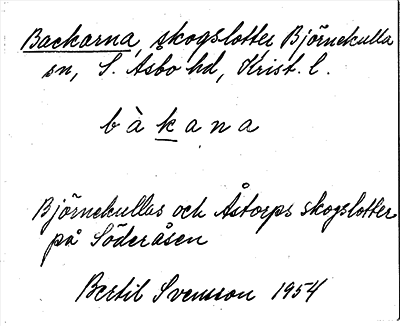 Backarna, skogslotter Björnekulla
sn, S. Åsbo hd, Krist. l.
b à k a n a
Björnekullas och Åstorps skogslotter
på Söderåsen
Bertil Svensson 1954